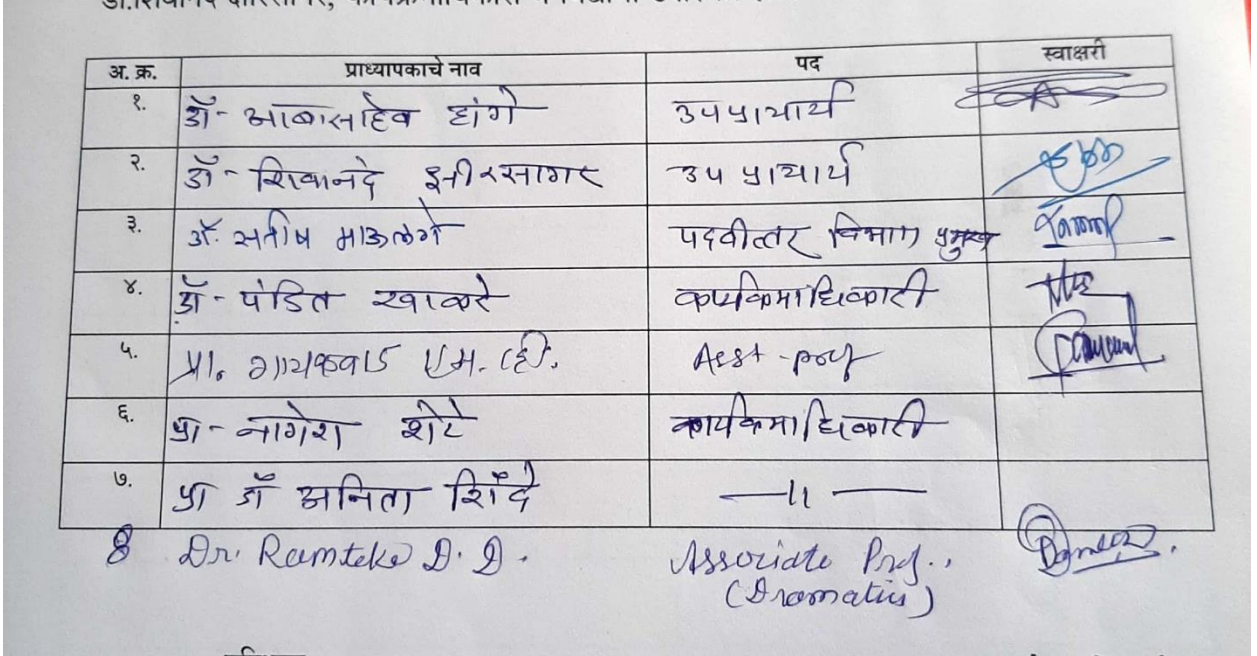 डॉ.शिवानंद क्षीरसागर, कार्यक्रमाधिकारी
अ. क्र. प्राध्यापकाचे नाव पद स्वाक्षरी
१. डॉ- आबासाहेब हांगे उपप्राचार्य
२. डॉ- शिवानंद क्षीरसागर उप प्राचार्य
३. डॉ. सतीष माऊलगे पदवीत्तर विभाग प्रमुख
४. डॉ- पंडित खाकरे कार्यक्रमाधिकारी
५. प्रा. गायकवाड एम. व्ही. Asst-prof
६. प्रा- नागेश शेटे कार्यक्रमाधिकारी
७. प्रा डॉ अनिता शिंदे —11—
8 Dr. Ramteke D. D. Associate Prof..
(Dramatics)